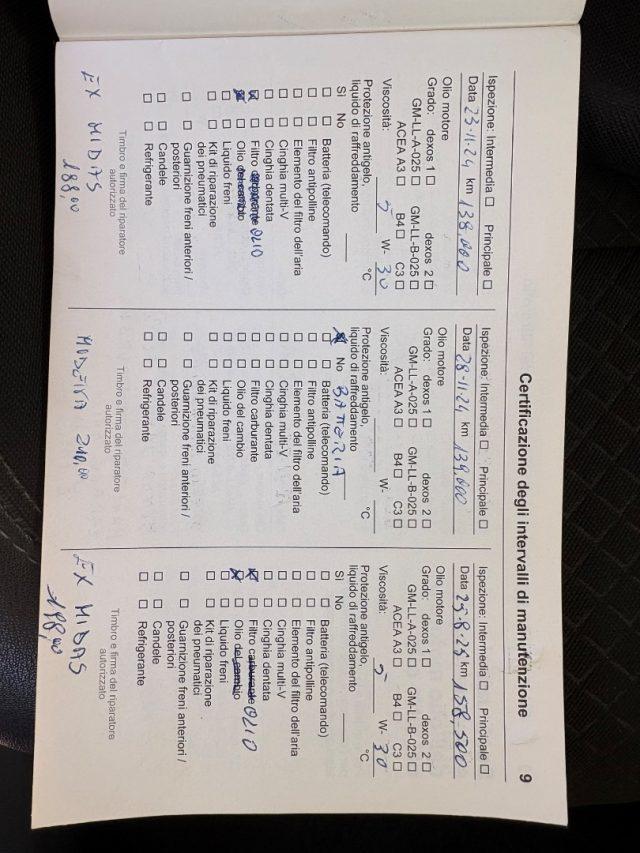 Certificazione degli intervalli di manutenzione 9
Ispezione: Intermedia □ Principale □
Data 23-11-24 km 138.000
Olio motore
Grado: dexos 1 □ dexos 2 □
GM-LL-A-025 □ GM-LL-B-025 □
ACEA A3 □ B4 □ C3 □
Viscosità: 5 W- 30
Protezione antigelo,
liquido di raffreddamento °C
Sì No
□ □ Batteria (telecomando)
□ □ Filtro antipolline
□ □ Elemento del filtro dell'aria
□ □ Cinghia multi-V
□ □ Cinghia dentata
☒ □ Filtro carburante OLIO
☒ □ Olio del cambio
□ □ Liquido freni
□ □ Kit di riparazione
dei pneumatici
□ □ Guarnizione freni anteriori /
posteriori
□ □ Candele
□ □ Refrigerante
Timbro e firma del riparatore
autorizzato
EX MIDAS
188,00
Ispezione: Intermedia □ Principale □
Data 28-11-24 km 139.000
Olio motore
Grado: dexos 1 □ dexos 2 □
GM-LL-A-025 □ GM-LL-B-025 □
ACEA A3 □ B4 □ C3 □
Viscosità: W-
Protezione antigelo,
liquido di raffreddamento °C
No BATTERIA
□ □ Batteria (telecomando)
□ □ Filtro antipolline
□ □ Elemento del filtro dell'aria
□ □ Cinghia multi-V
□ □ Cinghia dentata
□ □ Filtro carburante
□ □ Olio del cambio
□ □ Liquido freni
□ □ Kit di riparazione
dei pneumatici
□ □ Guarnizione freni anteriori /
posteriori
□ □ Candele
□ □ Refrigerante
Timbro e firma del riparatore
autorizzato
200,00
Ispezione: Intermedia □ Principale □
Data 25-8-25 km 158,500
Olio motore
Grado: dexos 1 □ dexos 2 □
GM-LL-A-025 □ GM-LL-B-025 □
ACEA A3 □ B4 □ C3 □
Viscosità: 5 W- 30
Protezione antigelo,
liquido di raffreddamento °C
Sì No
□ □ Batteria (telecomando)
□ □ Filtro antipolline
□ □ Elemento del filtro dell'aria
□ □ Cinghia multi-V
□ □ Cinghia dentata
☒ □ Filtro carburante OLIO
☒ □ Olio del cambio
□ □ Liquido freni
□ □ Kit di riparazione
dei pneumatici
□ □ Guarnizione freni anteriori /
posteriori
□ □ Candele
□ □ Refrigerante
Timbro e firma del riparatore
autorizzato
EX MIDAS
198,00